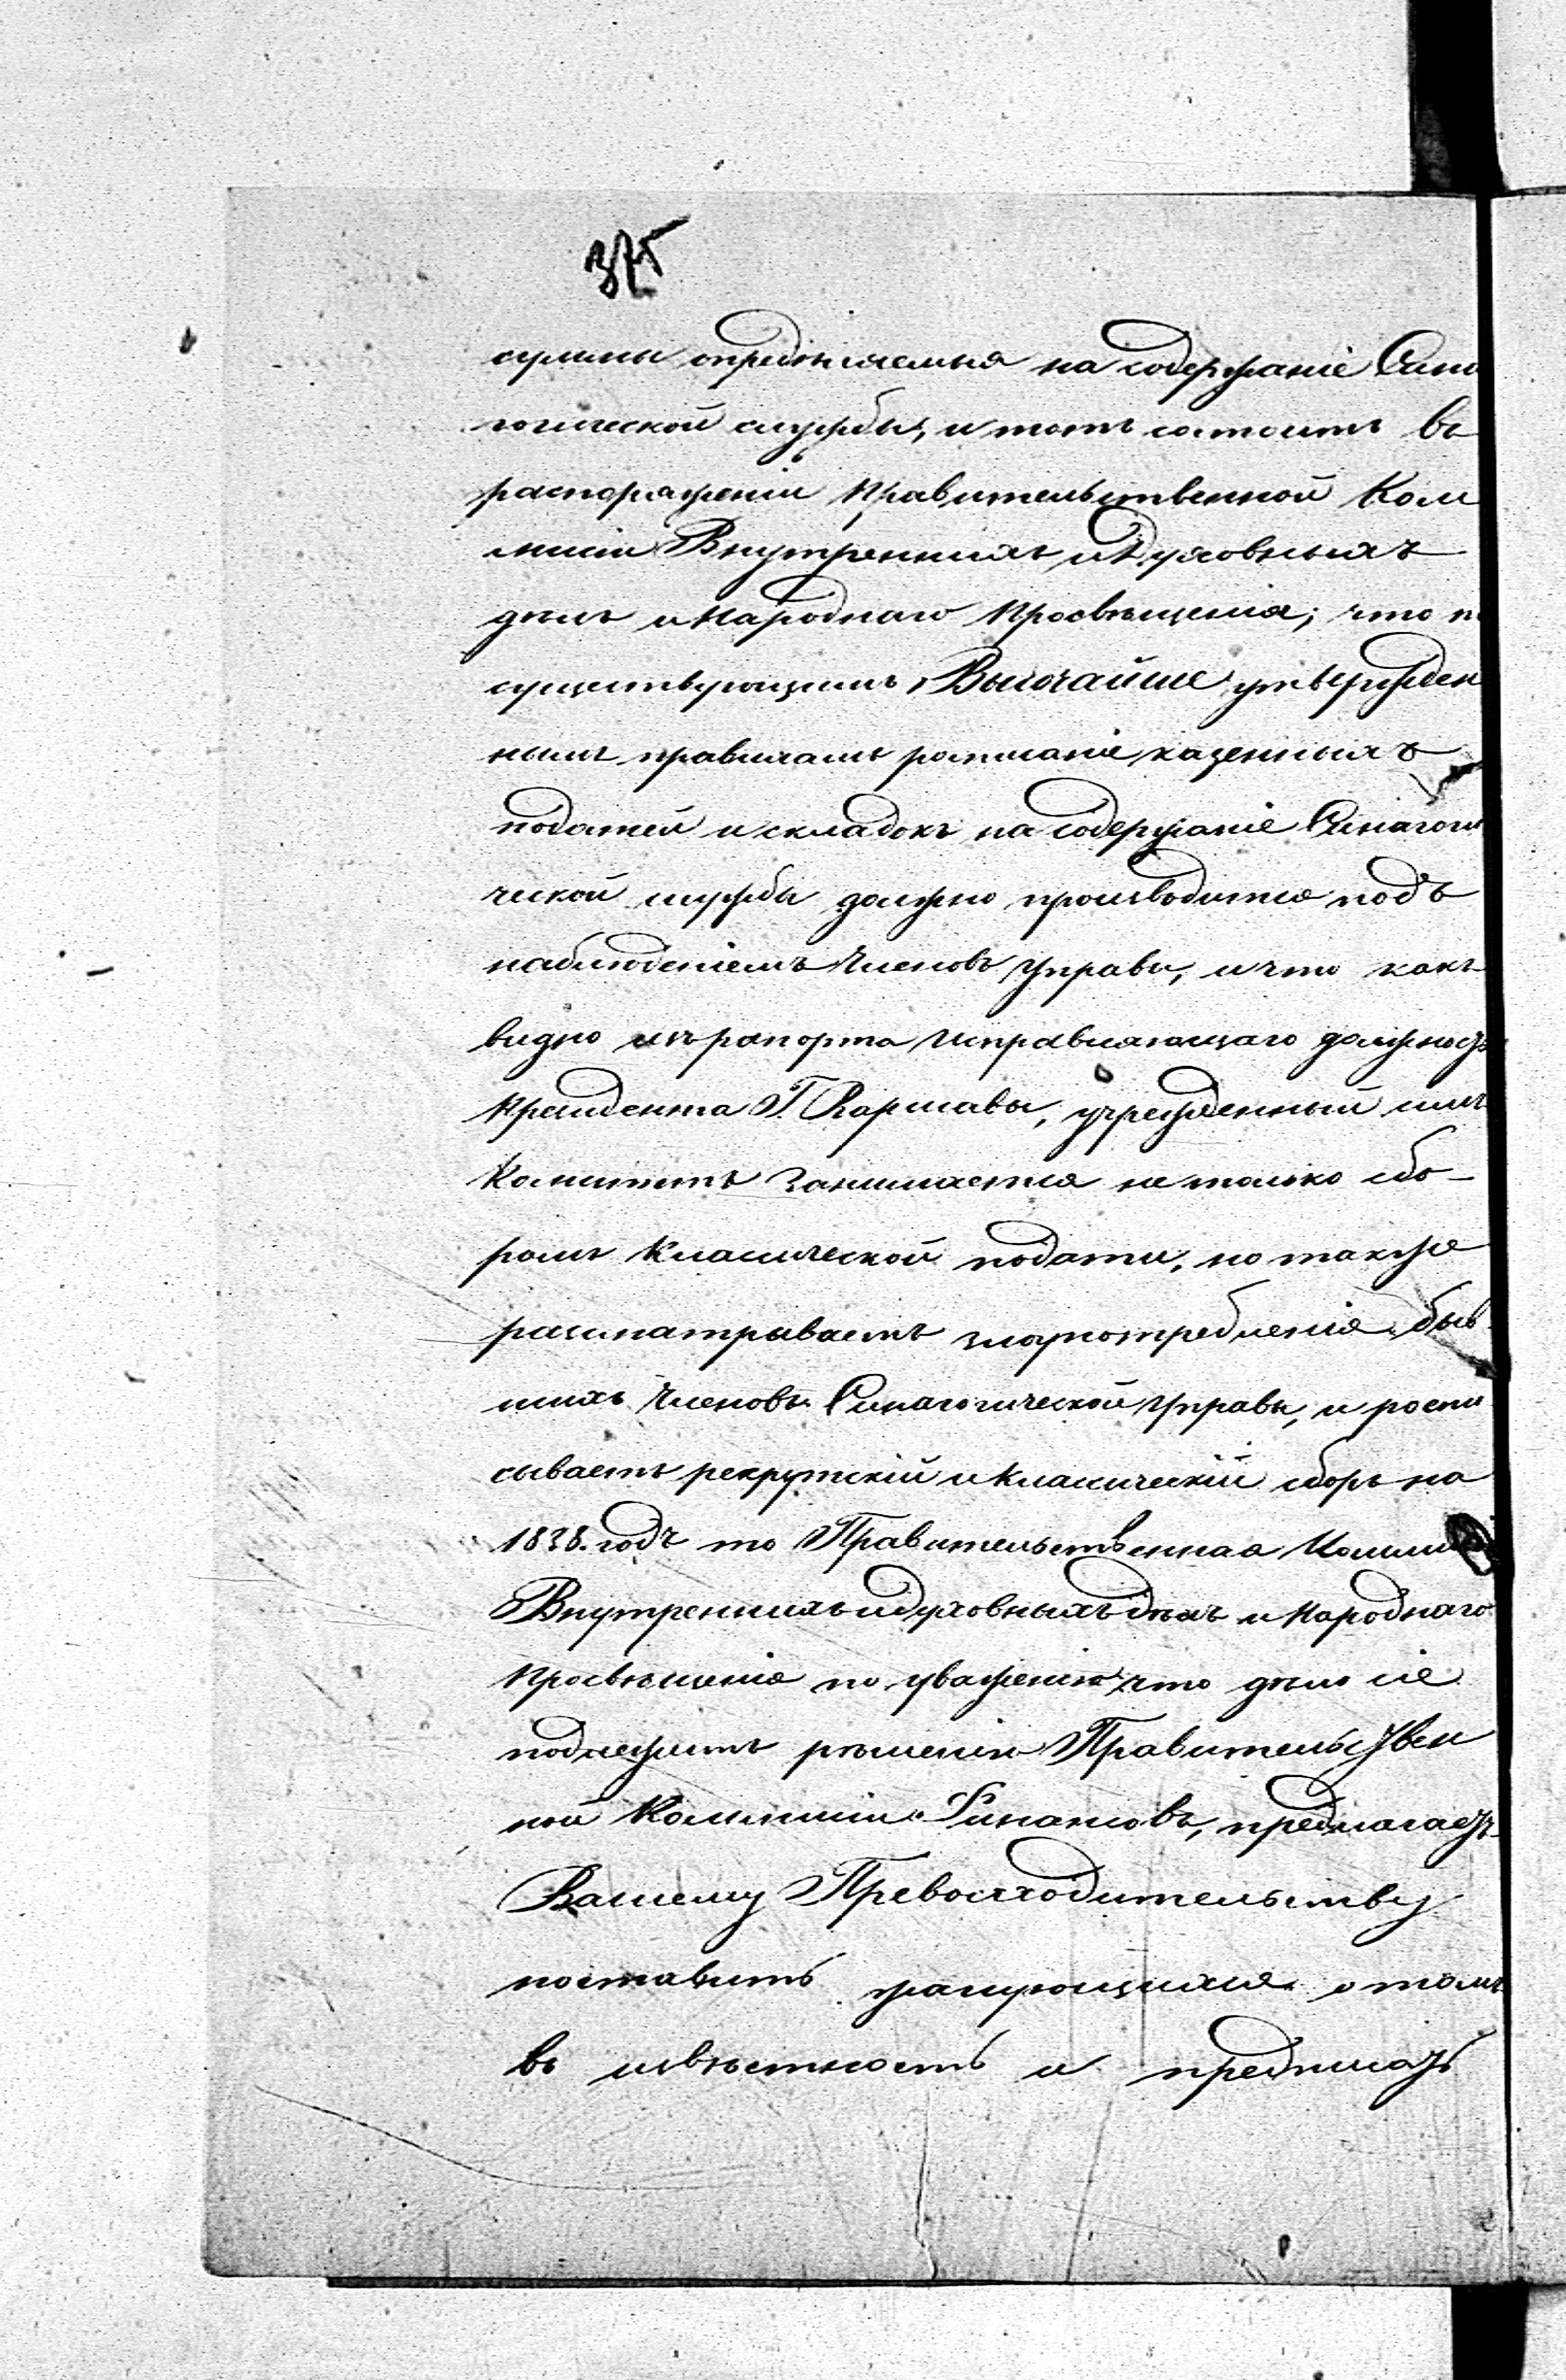 375
суммы опредѣляемыя на содержаніе Сина
гогической службы, и тотъ состоитъ въ
распоряженіи Правительственной Ком
мисіи Внутреннихъ и Духовныхъ
дѣлъ и Народнаго Просвѣщенія; что по
существующимъ Высочайше утвержден
нымъ правиламъ росписаніе казенныхъ
податей и складокъ на содержаніе Синагоги
ческой службы должно производится подъ
наблюденіемъ Членовъ Управы, и что какъ
видно изъ рапорта Исправляющаго должность
Президента Г. Варшавы, учрежденный имъ
Комитетъ занимается не только сбо-
ромъ Класической подати, но также
разсматрываетъ злоупотребленія быв
шихъ Членовъ Синагогической Управы, и роспи
сываетъ рекрутскій и класическій сборъ на
1838. годъ то Правительственная Коммисія
Внутреннихъ и Духовныхъ дѣлъ и Народнаго
Просвѣщенія по уваженію что дѣло сіе
подлежитъ рѣшенію Правительствен
ной Коммисіи Финансовъ, предлагаетъ
Вашему Превосходительству
поставить жалующихся о томъ
въ извѣстность и предписать